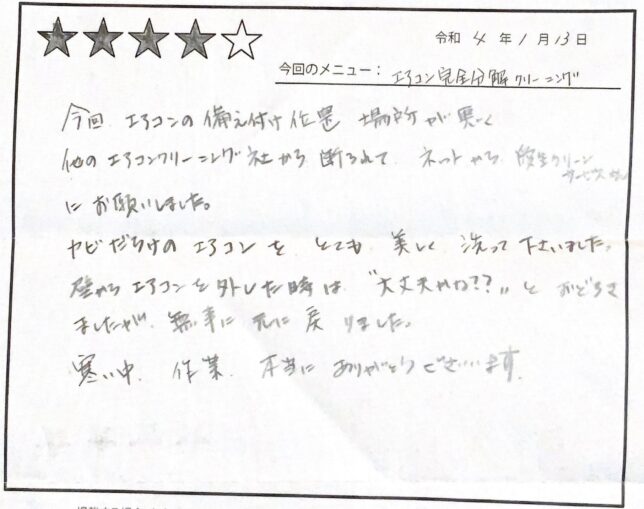 令和 4 年 1 月 13 日
今回のメニュー： エアコン完全分解クリーニング
今回、エアコンの備え付け位置 場所が悪く
他のエアコンクリーニング社から断られて、ネットから、クリーン
サービスさん
にお願いしました。
カビだらけのエアコンを、とても、美しく洗って下さいました。
壁からエアコンを外した時は、"大丈夫かね??"とおどろき
ましたが、無事に元に戻りました。
寒い中、作業、本当にありがとうございます。